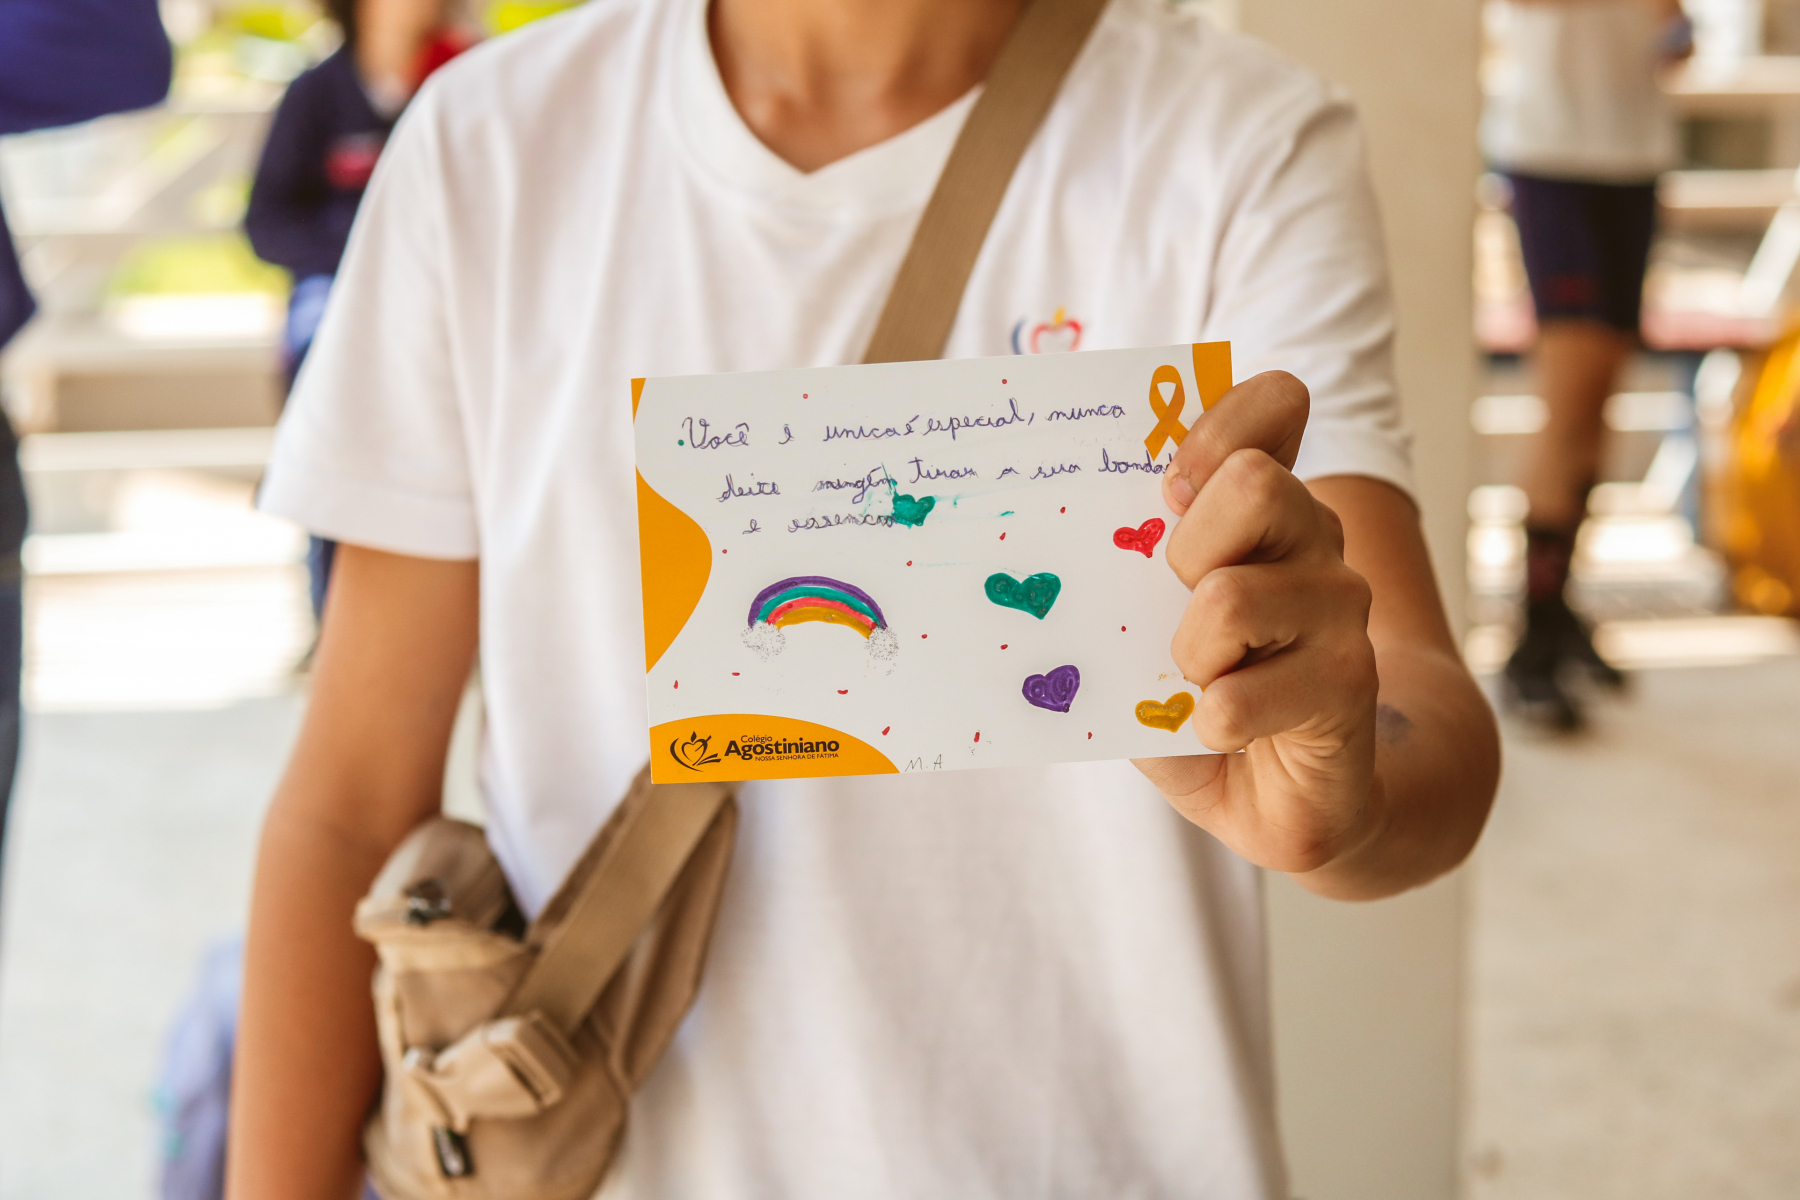 Você é unica é especial, nunca
deite ningém tirar a sua bonda
e essencia
Colégio
Agostiniano
NOSSA SENHORA DE FÁTIMA
M.A